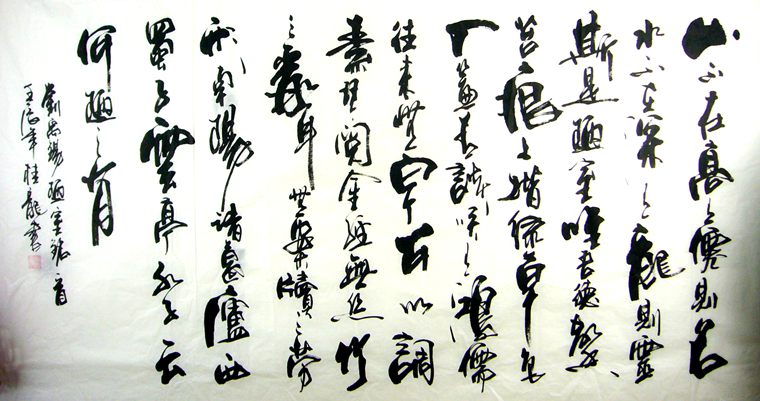 山不在高有僊則名
水不在深有龍則靈
斯是陋室唯吾德馨
苔痕上階綠草色
入簾青談笑有鴻儒
往來無白丁可以調
素琴閱金經無絲竹
之亂耳無案牘之勞
形南陽諸葛廬西
蜀子雲亭孔子云
何陋之有
劉禹錫陋室銘一首
年桂龍書